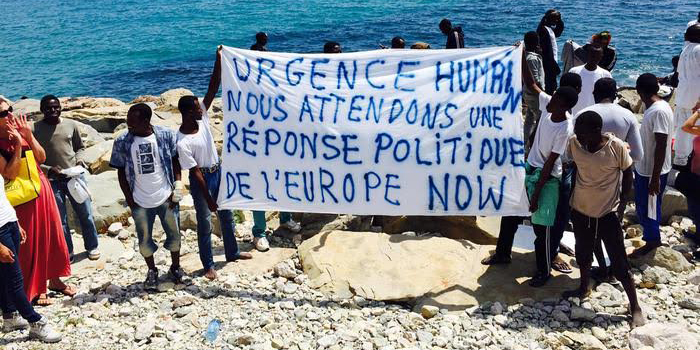 URGENCE HUMAIN
NOUS ATTENDONS UNE
RÉPONSE POLITIQUE
DE L'EUROPE NOW